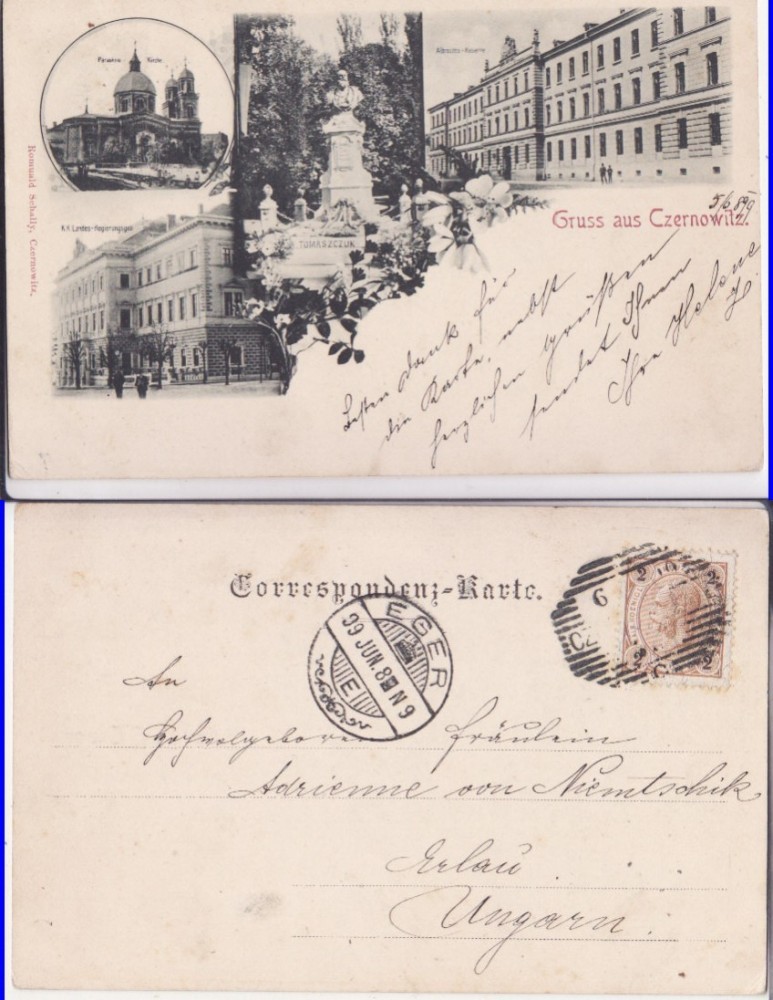 Paraskiva Kirche
Albrechts-Kaserne
Romuald Schally, Czernowitz.
K.K. Landes-Regierungsgeb.
TOMASZCZUK
5/6 899
Gruss aus Czernowitz.
Besten Dank für
die Karte, nebst
herzlichen Grüßen
sendet Ihnen
Ihre Helene
Correspondenz-Karte.
2 2
6
2 2
EGER
99 JUN. 8 N 9
E
An
Hochwolgeboren Fräulein
Adrienne von Niemtschik
Erlau
Ungarn.